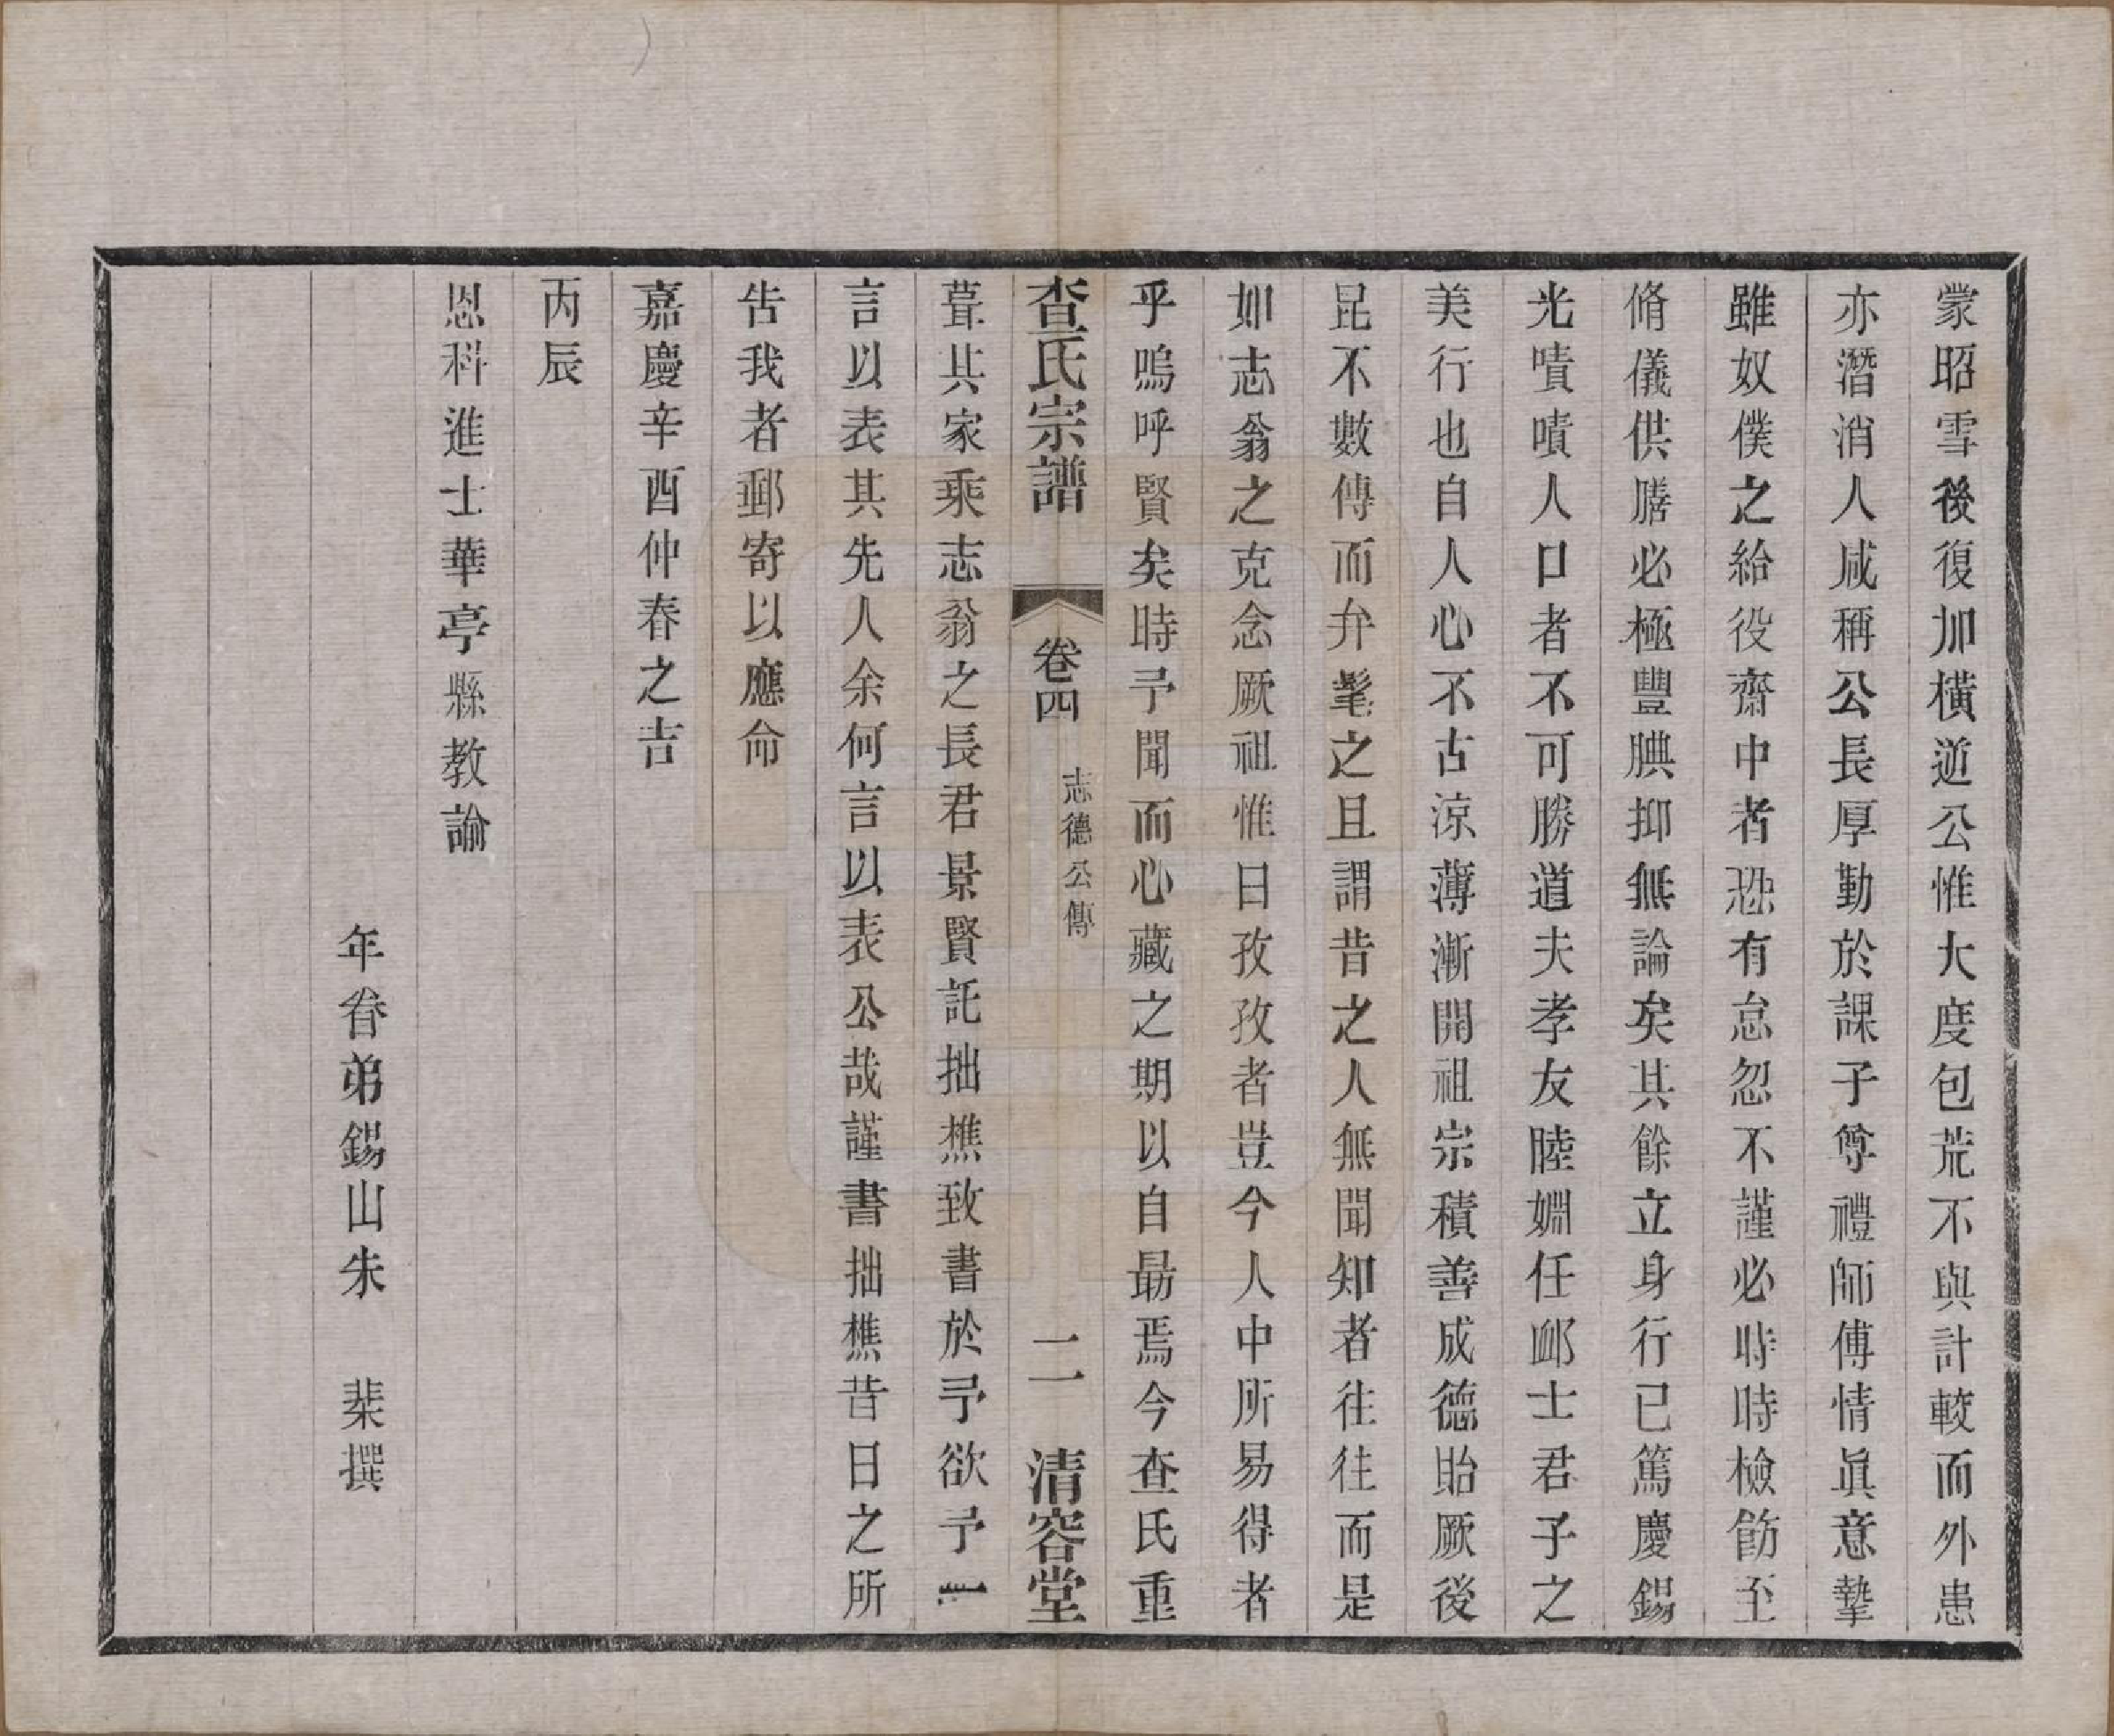 蒙昭雪後復加橫逆公惟大度包荒不與計較而外患
亦潛消人咸稱公長厚勤於課子尊禮師傅情眞意摯
雖奴僕之給役齋中者恐有怠忽不謹必時時檢飭至
脩儀供膳必極豐腆抑無論矣其餘立身行已篤慶錫
光嘖嘖人口者不可勝道夫孝友睦婣任卹士君子之
美行也自人心不古涼薄漸開祖宗積善成德貽厥後
昆不數傳而弁髦之且謂昔之人無聞知者往往而是
如志翁之克念厥祖惟日孜孜者豈今人中所易得者
乎嗚呼賢矣時予聞而心藏之期以自勗焉今查氏重
查氏宗譜 卷四 志德公傳 二 清容堂
葺其家乘志翁之長君景賢託拙樵致書於予欲予一
言以表其先人余何言以表公哉謹書拙樵昔日之所
告我者郵寄以應命
嘉慶辛酉仲春之吉
丙辰
恩科進士華亭縣教諭
年眷弟錫山朱 棐撰